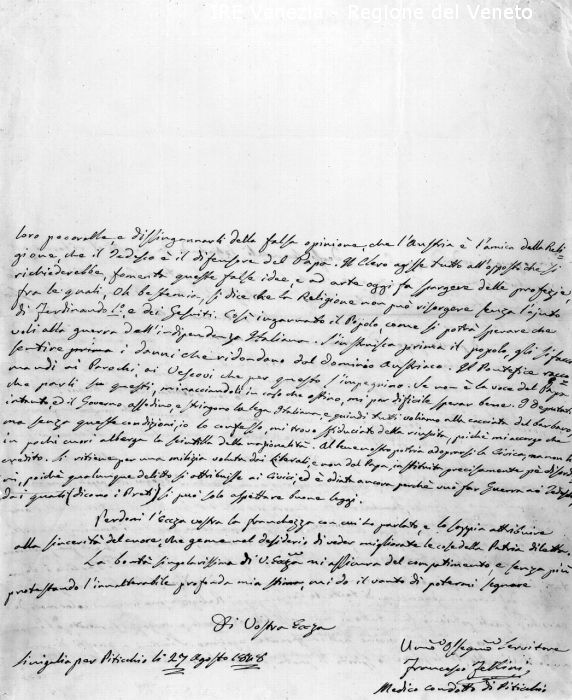 IRE Venezia - Regione del Veneto
loro pecorelle, e dissingannarli della falsa opinione, che l'Austria è l'amica della Reli=
gione, che il Tedesco è il difensore del Papa. Il Clero agisce tutto all'opposto che si
richiederebbe, fomenta queste false idee, e ad arte oggi fa sorgere delle profezie,
fra le quali, Oh bestemia, si dice che la Religione non può risorgere senza l'ajuto
di Ferdinando I.º e dei Gesuiti. Così ingannato il Popolo, come si potrà sperare che
voli alla guerra dell'indipendenza Italiana. S'instruisca prima il popolo, gli si facci
sentire prima i danni che ridondano dal dominio Austriaco. Il Pontefice racco=
mandi ai Parochi, ai Vescovi che per questo s'impegnino. Se non è la voce del Papa
che parli su questi, minacciandoli in caso che ostino, mi par difficile sperar bene. I deputati
intanto, ed il Governo assodino, e stringono la lega Italiana, e quindi tutti voliamo alla cacciata del barbaro,
ma senza queste condizioni, io lo confesso, mi trovo sfiduciato della riuscita, poichè mi accorgo che
in pochi cuori alberga la scintilla della nazionalità. Al bene nostro potria adoprarsi la Civica, ma non ha
credito. Si ritiene per una milizia voluta dai liberali, e non dal Papa, instituita precisamente pei
ni, poichè qualunque delitto si attribuisce ai Civici, ed è odiata ancora perchè vuol far Guerra ai Tedeschi
dai quali (dicono i Preti) si può solo aspettare buone leggi.
Perdoni l'Ecc.za vostra la franchezza con cui ho parlato, e lo sappia attribuire
alla sincerità del cuore, che geme nel desiderio di veder migliorate le cose della Patria diletta.
La bontà singolarissima di V. Ecc.za mi assicura del compatimento, e senza più
protestando l'inalterabile profonda mia stima, mi do il vanto di potermi segnare
Di Vostra Ecc.za
Umo Ossequo Servitore
Sinigalia per Piticchio li 27 Agosto 1848
Francesco
Medico condotto di Piticchio